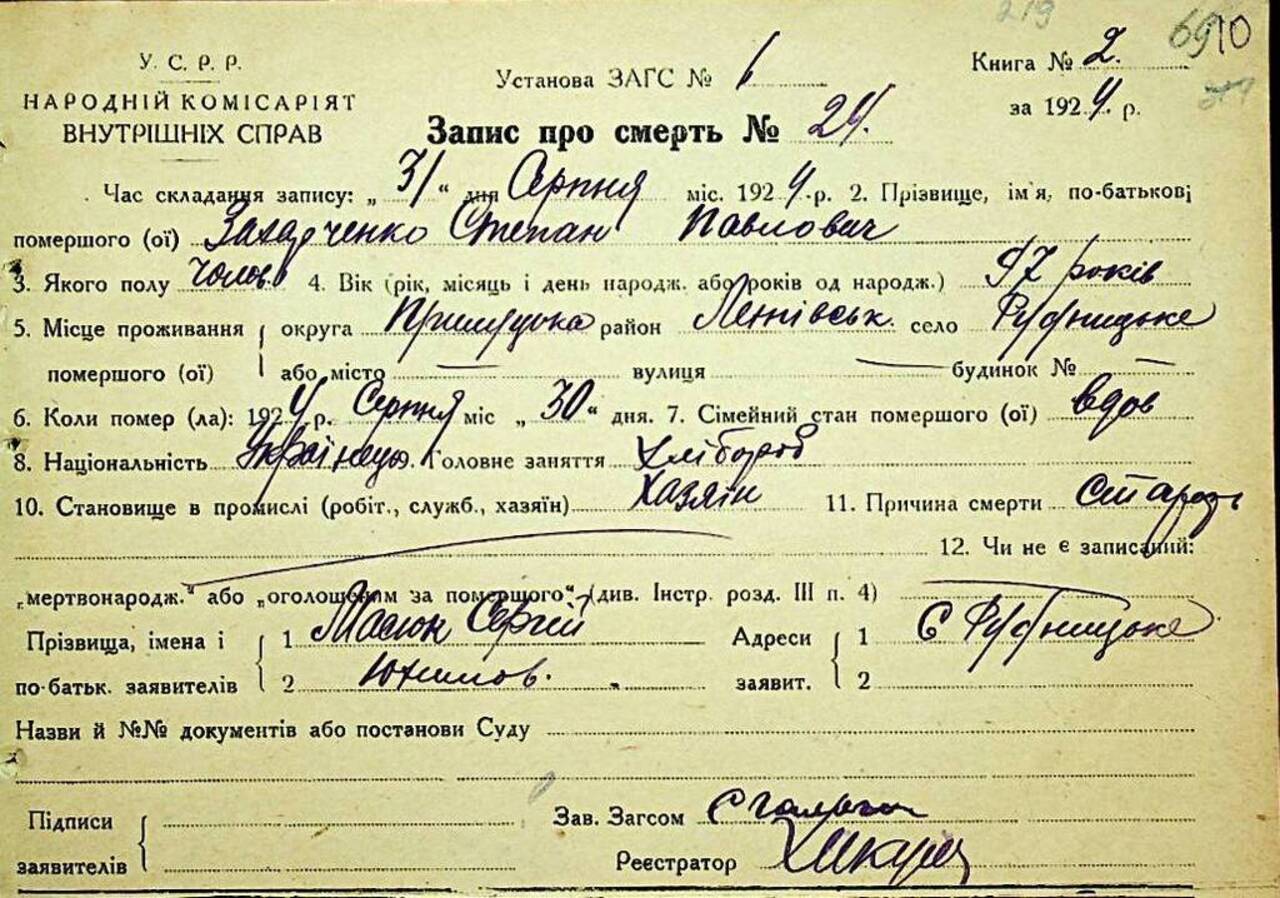 219
69 10
У. С. Р. Р.
НАРОДНІЙ КОМІСАРІЯТ
ВНУТРІШНІХ СПРАВ
Установа ЗАГС № 6
Книга № 2.
за 1924 р.
Запис про смерть № 24.
Час складання запису: „31“ дня Серпня міс. 1924 р. 2. Прізвище, ім'я, по-батькові
помершого (ої) Захарченко Степан Павлович
3. Якого полу чолов 4. Вік (рік, місяць і день народж. або років од народж.) 97 років
5. Місце проживання округа Прилуцька район село
помершого (ої) або місто — вулиця — будинок № —
6. Коли помер (ла): 1924 р. Серпня міс „30“ дня. 7. Сімейний стан помершого (ої) вдов
8. Національність Українець. Головне заняття Хлібороб
10. Становище в промислі (робіт., служб., хазяїн) Хазяін 11. Причина смерти старость
12. Чи не є записаний:
„мертвонародж.“ або „оголошеним за помершого“ (див. Інстр. розд. III п. 4)
Прізвища, імена і 1 Масюк Сергій Адреси 1 С
по-батьк. заявителів 2 Юхимов. заявит. 2
Назви й №№ документів або постанови Суду
Підписи Зав. Загсом
заявителів Реєстратор